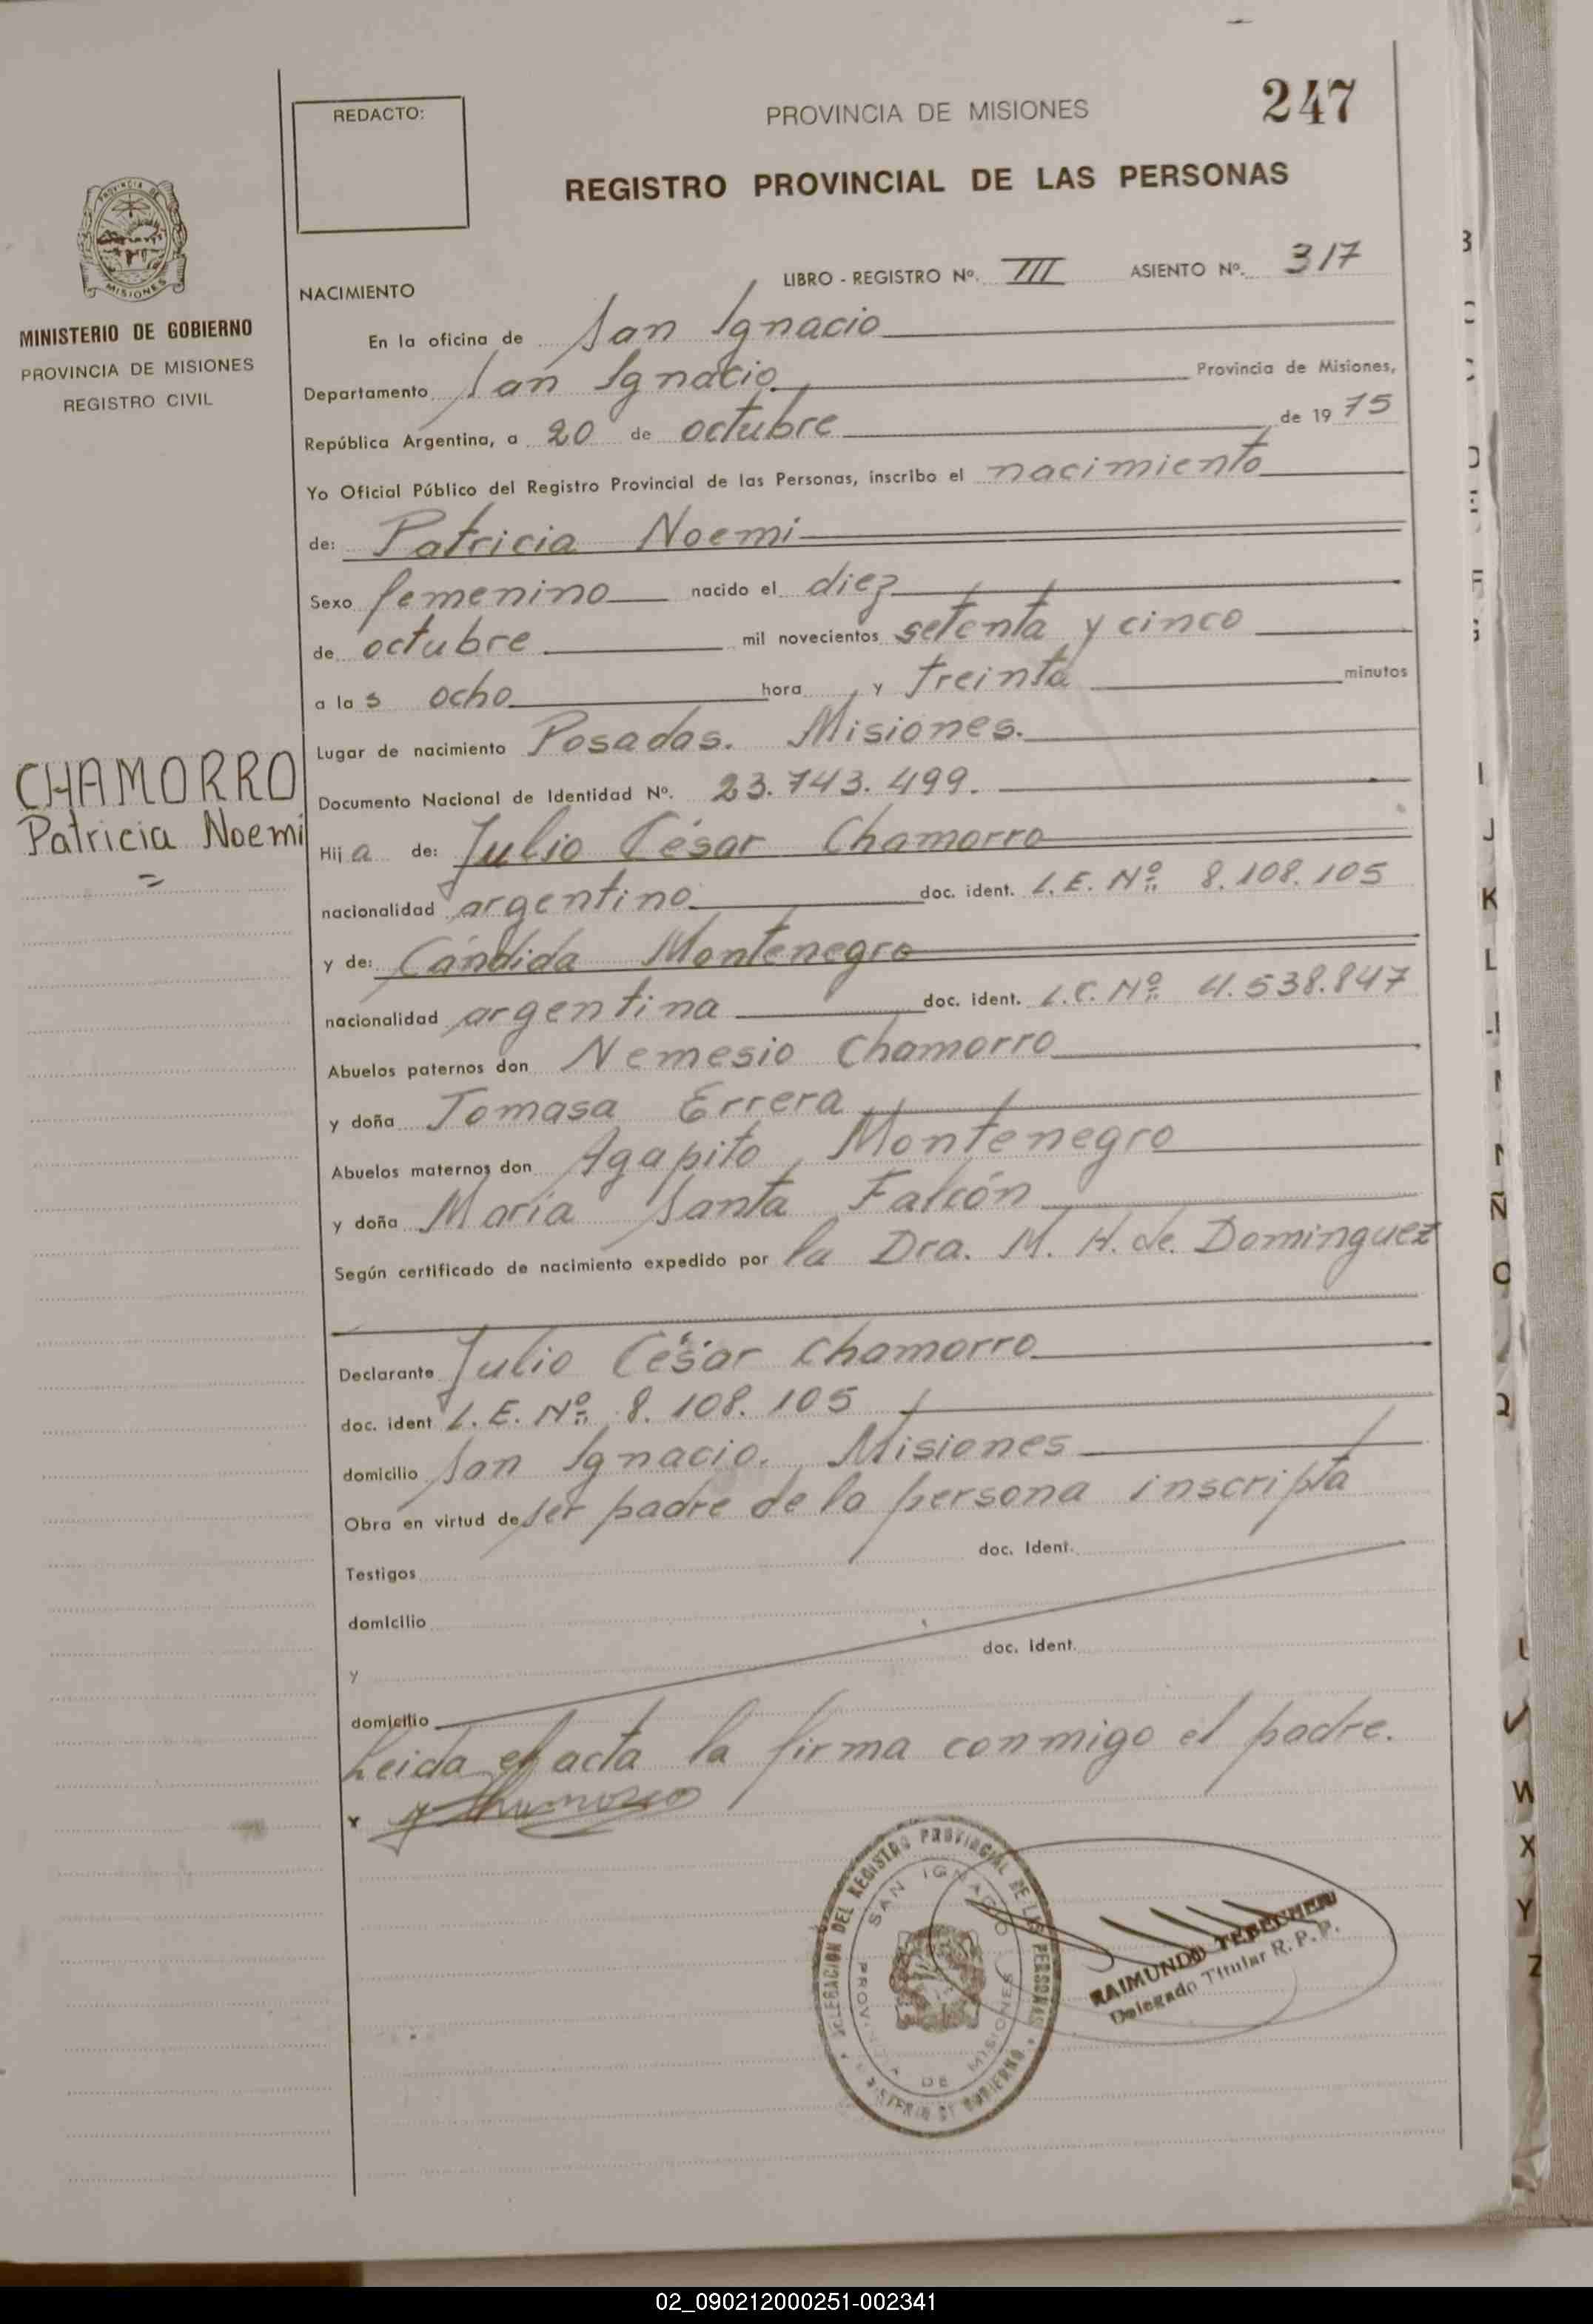 REDACTO:
PROVINCIA DE MISIONES
247
REGISTRO PROVINCIAL DE LAS PERSONAS
MISIONES
MINISTERIO DE GOBIERNO
PROVINCIA DE MISIONES
REGISTRO CIVIL
NACIMIENTO
LIBRO - REGISTRO Nº. III ASIENTO Nº. 317
En la oficina de San Ignacio
Departamento San Ignacio Provincia de Misiones,
República Argentina, a 20 de octubre de 1975
Yo Oficial Público del Registro Provincial de las Personas, inscribo el nacimiento
de: Patricia Noemi
Sexo femenino nacido el diez
de octubre mil novecientos setenta y cinco
a las ocho hora y treinta minutos
Lugar de nacimiento Posadas. Misiones.
CHAMORRO
Patricia Noemi
Documento Nacional de Identidad Nº. 23.743.499.
Hija de: Julio César Chamorro
nacionalidad argentino doc. ident. L.E. Nº 8.108.105
y de: Cándida Montenegro
nacionalidad argentina doc. ident. L.C. Nº 4.538.847
Abuelos paternos don Nemesio Chamorro
y doña Tomasa Errera
Abuelos maternos don Agapito Montenegro
y doña María Santa Falcón
Según certificado de nacimiento expedido por la Dra. M. H. de Dominguez
Declarante Julio César Chamorro
doc. ident L.E. Nº 8.108.105
domicilio San Ignacio. Misiones
Obra en virtud de ser padre de la persona inscripta
Testigos doc. Ident.
domicilio
y doc. ident.
domicilio
Leida el acta la firma conmigo el padre.
DELEGACION DEL REGISTRO PROVINCIAL DE LAS PERSONAS
SAN IGNACIO
PROVINCIA DE MISIONES
MINISTERIO DE GOBIERNO
RAIMUNDO
Delegado Titular R. P. P.
K
L
Ñ
W
X
Y
Z
02_090212000251-002341